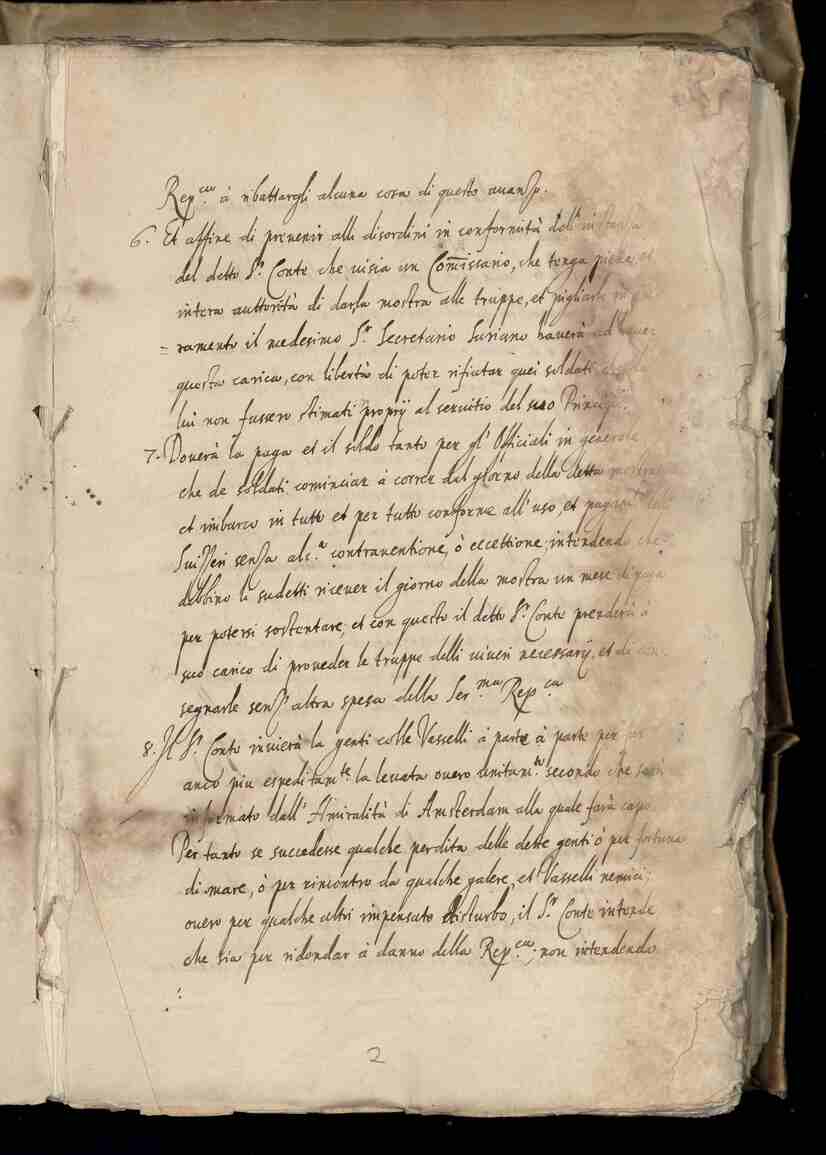 Rep.ca à ribattargli alcuna cosa di questo auanzo.
6. Et affine di preuenir alli disordini in conformità dell' instanza
del detto S.r Conte che uisia un Comissario, che tenga piena et
intera auttorità di darla mostra alle truppe, et pigliarle
= ramento il medesimo S.r Secretario Suriano hauerà
questa carica, con libertà di poter rifiutar quei soldati
lui non fussero stimati proprij al seruitio del suo Principe.
7. Douerà la paga et il soldo tanto per gl' Officiali in generale
che de soldati cominciar à correr dal giorno della detta mostra
et imbarco in tutto et per tutto conforme all' uso, et pagam.to
Suisseri senza alc.a contrauentione, ò eccettione; intendendo che
debbino li sudetti riceuer il giorno della mostra un mese di paga
per potersi sostentare; et con questo il detto S.r Conte prenderà à
suo carico di proueder le truppe delli uiueri necessarij, et di con
segnarle senz' altra spesa della Ser.ma Rep.ca
8. Il S.r Conte inuierà la genti colle Vasselli à parte à parte per
anco piu espeditam.te la leuata ouero unitam.te secondo che sarà
informato dall' Amiralità di Amsterdam alla quale farà capo
Per tanto se succedesse qualche perdita delle dette genti ò per fortuna
di mare, ò per rincontro da qualche galere, et Vasselli nemici;
ouero per qualche altri impensato disturbo, il S.r Conte intende
che sia per ridondar à danno della Rep.ca; non intendendo
2